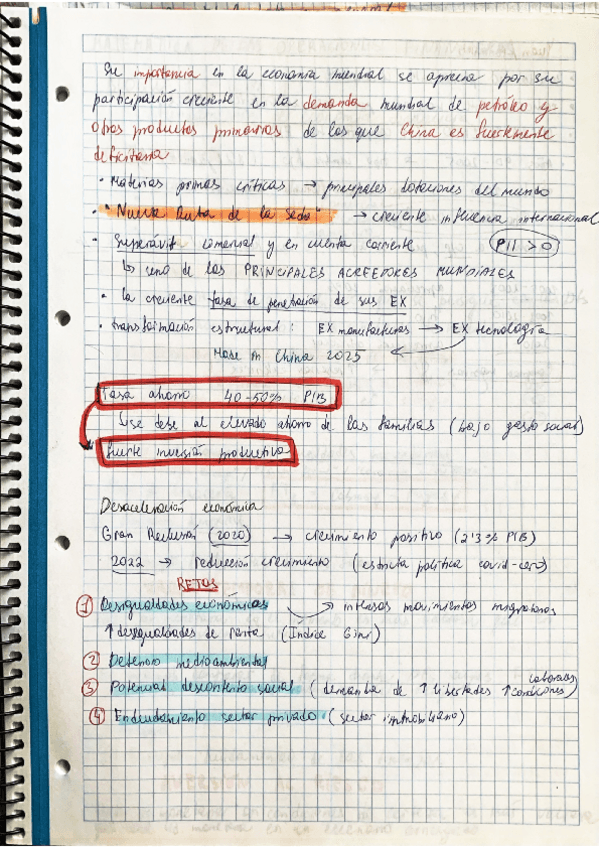 Su importancia en la economía mundial se aprecia por su
participación creciente en la demanda mundial de petróleo y
otros productos primarios de los que China es fuertemente
deficitaria
· Materias primas críticas → principales dotaciones del mundo
· "Nueva Ruta de la Seda" → creciente influencia internacional
· Superávit comercial y en cuenta corriente PII > 0
↳ uno de los PRINCIPALES ACREEDORES MUNDIALES
· la creciente tasa de penetración de sus EX
· transformación estructural: EX manufacturas → EX tecnología
Made in China 2025
Tasa ahorro 40-50% PIB
↳ se debe al elevado ahorro de las familias (bajo gasto social)
fuerte inversión productiva
Desaceleración económica
Gran Reclusión (2020) → crecimiento positivo (2'3% PIB)
2022 → reducción crecimiento (estricta política covid-cero)
RETOS
1 Desigualdades económicas → intensos movimientos migratorios
↑ desigualdades de renta (Índice Gini)
2 Deterioro medioambiental
3 Potencial descontento social (demanda de ↑ libertades ↑ condiciones laborales)
4 Endeudamiento sector privado (sector inmobiliario)